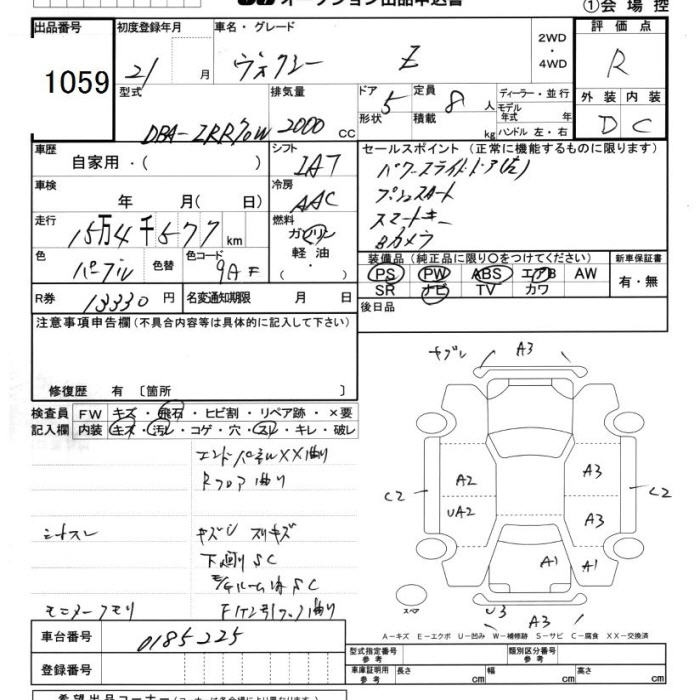 オークション出品申込書
①会場控
出品番号 初度登録年月 車名・グレード 2WD・4WD 評価点
1059 21 月 ヴォクシー Z R
型式 排気量 ドア形状 定員 積載 ディーラー・並行 外装 内装
DBA-ZRR70W 2000 cc 5 8 人 kg モデル年式 年 ハンドル 左・右 D C
車歴 自家用・( ) シフト IAT セールスポイント(正常に機能するものに限ります)
パワースライドドア(左)
プッシュスタート
スマートキー
Bカメラ
車検 年 月( 日) 冷房 AAC
走行 15万4千577km 燃料 ガソリン 軽油 ・( )
色 パープル 色替 色コード 9AF
装備品(純正品に限り○をつけてください) 新車保証書
PS PW ABS エアB AW 有・無
SR ナビ TV カワ
R券 13330円 名変通知期限 月 日 後日品
注意事項申告欄(不具合内容等は具体的に記入して下さい)
修復歴 有 〔箇所 〕
検査員 FW キズ・飛石・ヒビ割・リペア跡・×要
記入欄 内装 キズ・汚レ・コゲ・穴・スレ・キレ・破レ
エンドパネルXX曲り
Rフロア曲り
シートスレ キズ凹 スリキズ
下廻りSC
SC
モニタークモリ 曲り
A3
A2 A3
C2 C2
UA2 A3
A1 A1
スペア U3 A3
A-キズ E-エクボ U-凹み W-補修跡 S-サビ C-腐食 XX-交換済
車台番号 0185225
型式指定番号 参考 類別区分番号 参考
登録番号
車庫証明用 参考 長さ cm 幅 cm 高さ cm
希望出品コーナー